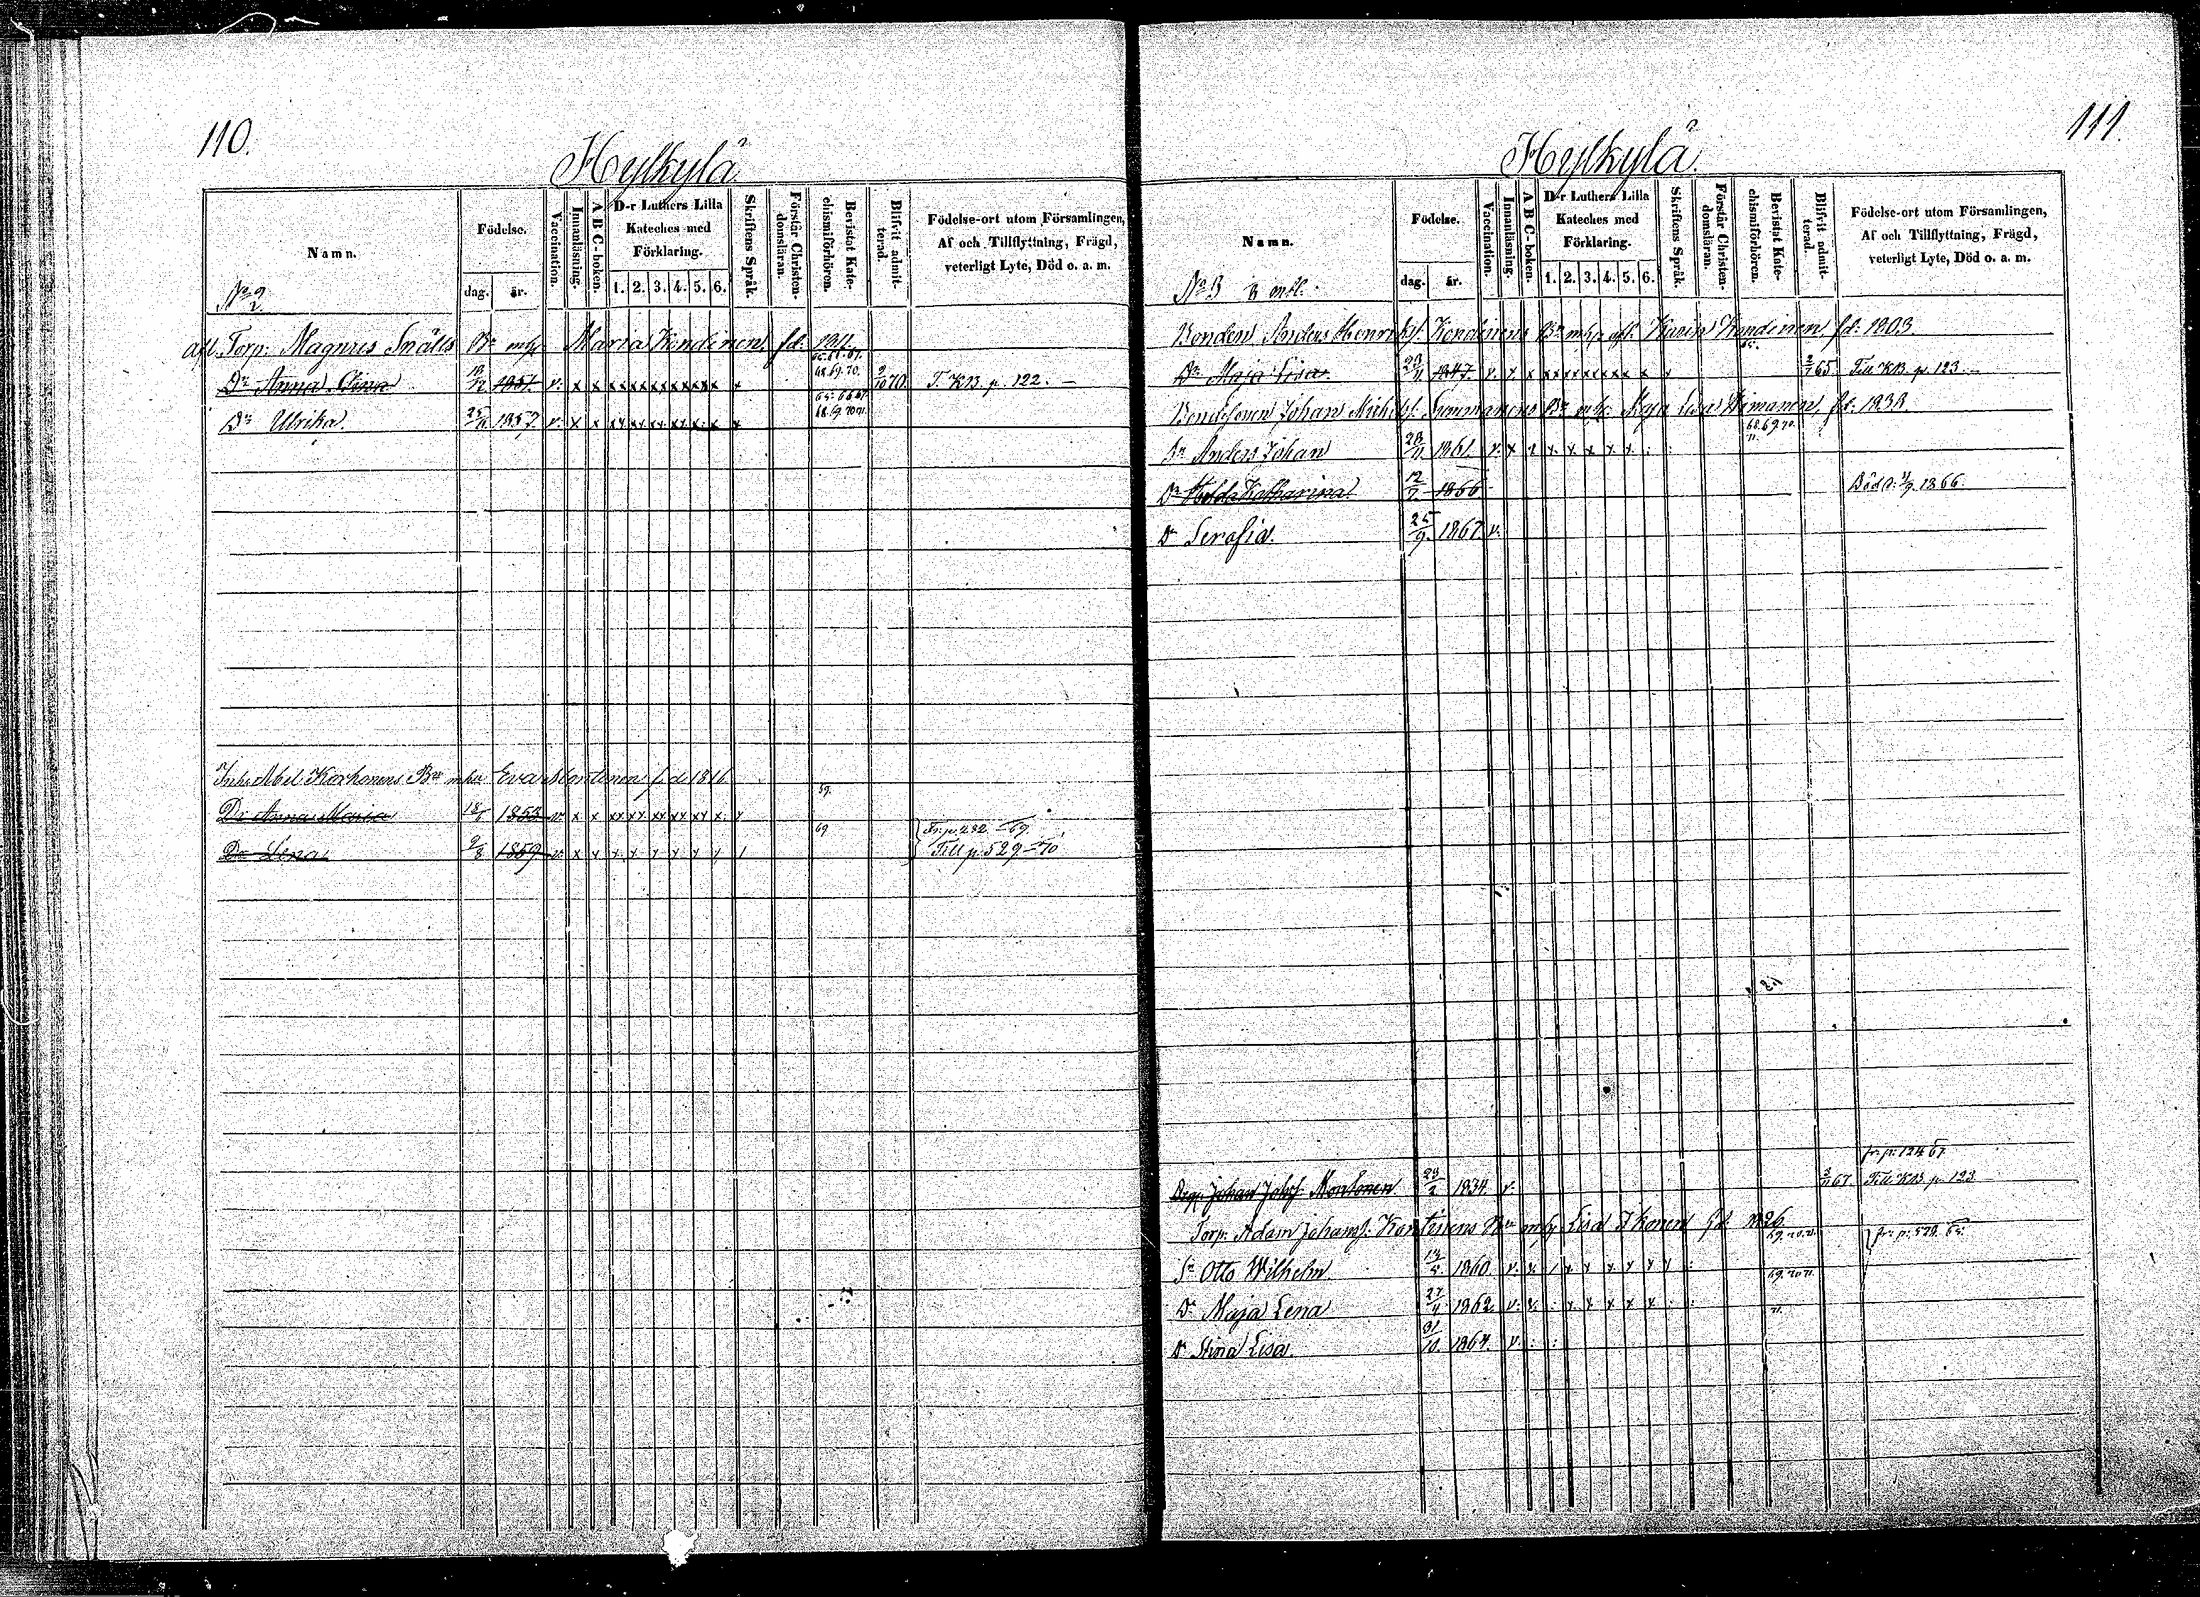 110.
Hylkylä
Namn.
Födelse.
dag. år.
Vaccination.
Innanläsning.
A B C-boken.
D-r Luthers Lilla Kateches med Förklaring.
1. 2. 3. 4. 5. 6.
Skriftens Språk.
Förstår Christendomsläran.
Bevistat Katechismiförhören.
Blifvit admitterad.
Födelse-ort utom Församlingen,
Af och Tillflyttning, Frägd,
veterligt Lyte, Död o. a. m.
No 2
afl. Torp: Magnus Snälls Bn mhu Maria Kondinen fd: 1811
Dr Anna Stina 1851 v. x x 68.69.70. 9/10 70. T. KB. p. 122. —
Dr Ulrika 25/11 1857 v. x x 68.69.70.71.
Inh. Abel Korhonens Bn mhu Eva Montonen fd 1816
59.
Dr Anna Maria 18/6 1853 v. x x
69
Fr. p. 232 — 69.
Dr Lena 9/8 1859 v. x x
Till p. 529 — 70
111.
Hylkylä.
Namn.
Födelse.
dag. år.
Vaccination.
Innanläsning.
A B C-boken.
D-r Luthers Lilla Kateches med Förklaring.
1. 2. 3. 4. 5. 6.
Skriftens Språk.
Förstår Christendomsläran.
Bevistat Katechismiförhören.
Blifvit admitterad.
Födelse-ort utom Församlingen,
Af och Tillflyttning, Frägd,
veterligt Lyte, Död o. a. m.
No 3
Bonden Anders Henriksf. Kondinens Bn mhu afl. Karin Kondinen fd: 1803
65.
Dr Maja Lisa 23/11 1847. v. x x 2/7 65 Till KB. p. 123. —
Bondesonen Johan Michelsf. Bn mhu Maja Lisa fd: 1838
68.69.70. 71.
Sn Anders Johan 28/11 1861. v. x
Dr Hulda Katharina 12/7 1866 Död 1866.
Dr Serafia. 25/9 1867. v.
fr. p: 124 67
Johan Johsf. Montonen 28/2 1834. v. 67 Till KB p. 123
Torp: Adam Johansf. Bn mhu Lisa Ikonen fd 1826.
69.70.71.
fr: p: 528. 65.
Sn Otto Wilhelm 1860. v.
69.70.71.
Dr Maja Lena 27/11 1862. v.
71.
Dr Stina Lisa. 31/10 1864. v.